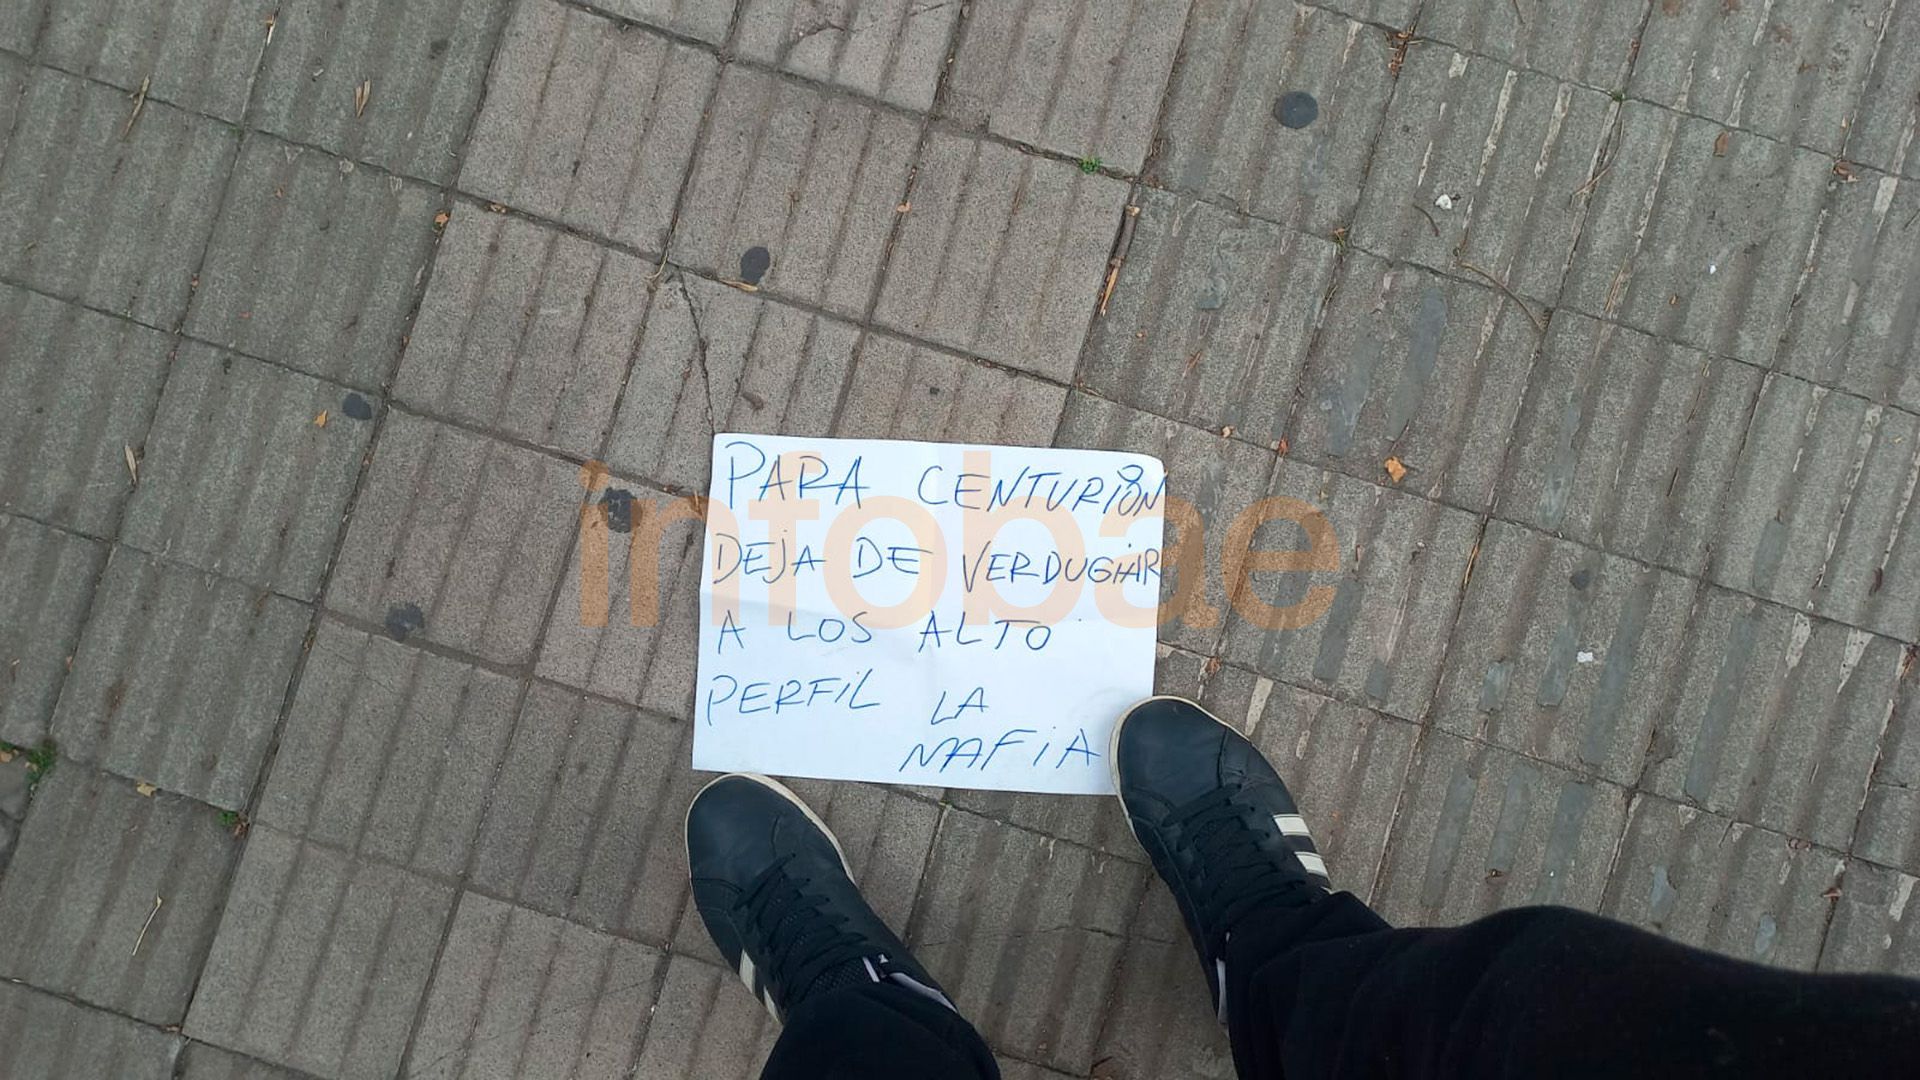 PARA CENTURIÓN
DEJA DE VERDUGIAR
A LOS ALTO
PERFIL LA
MAFIA
infobae